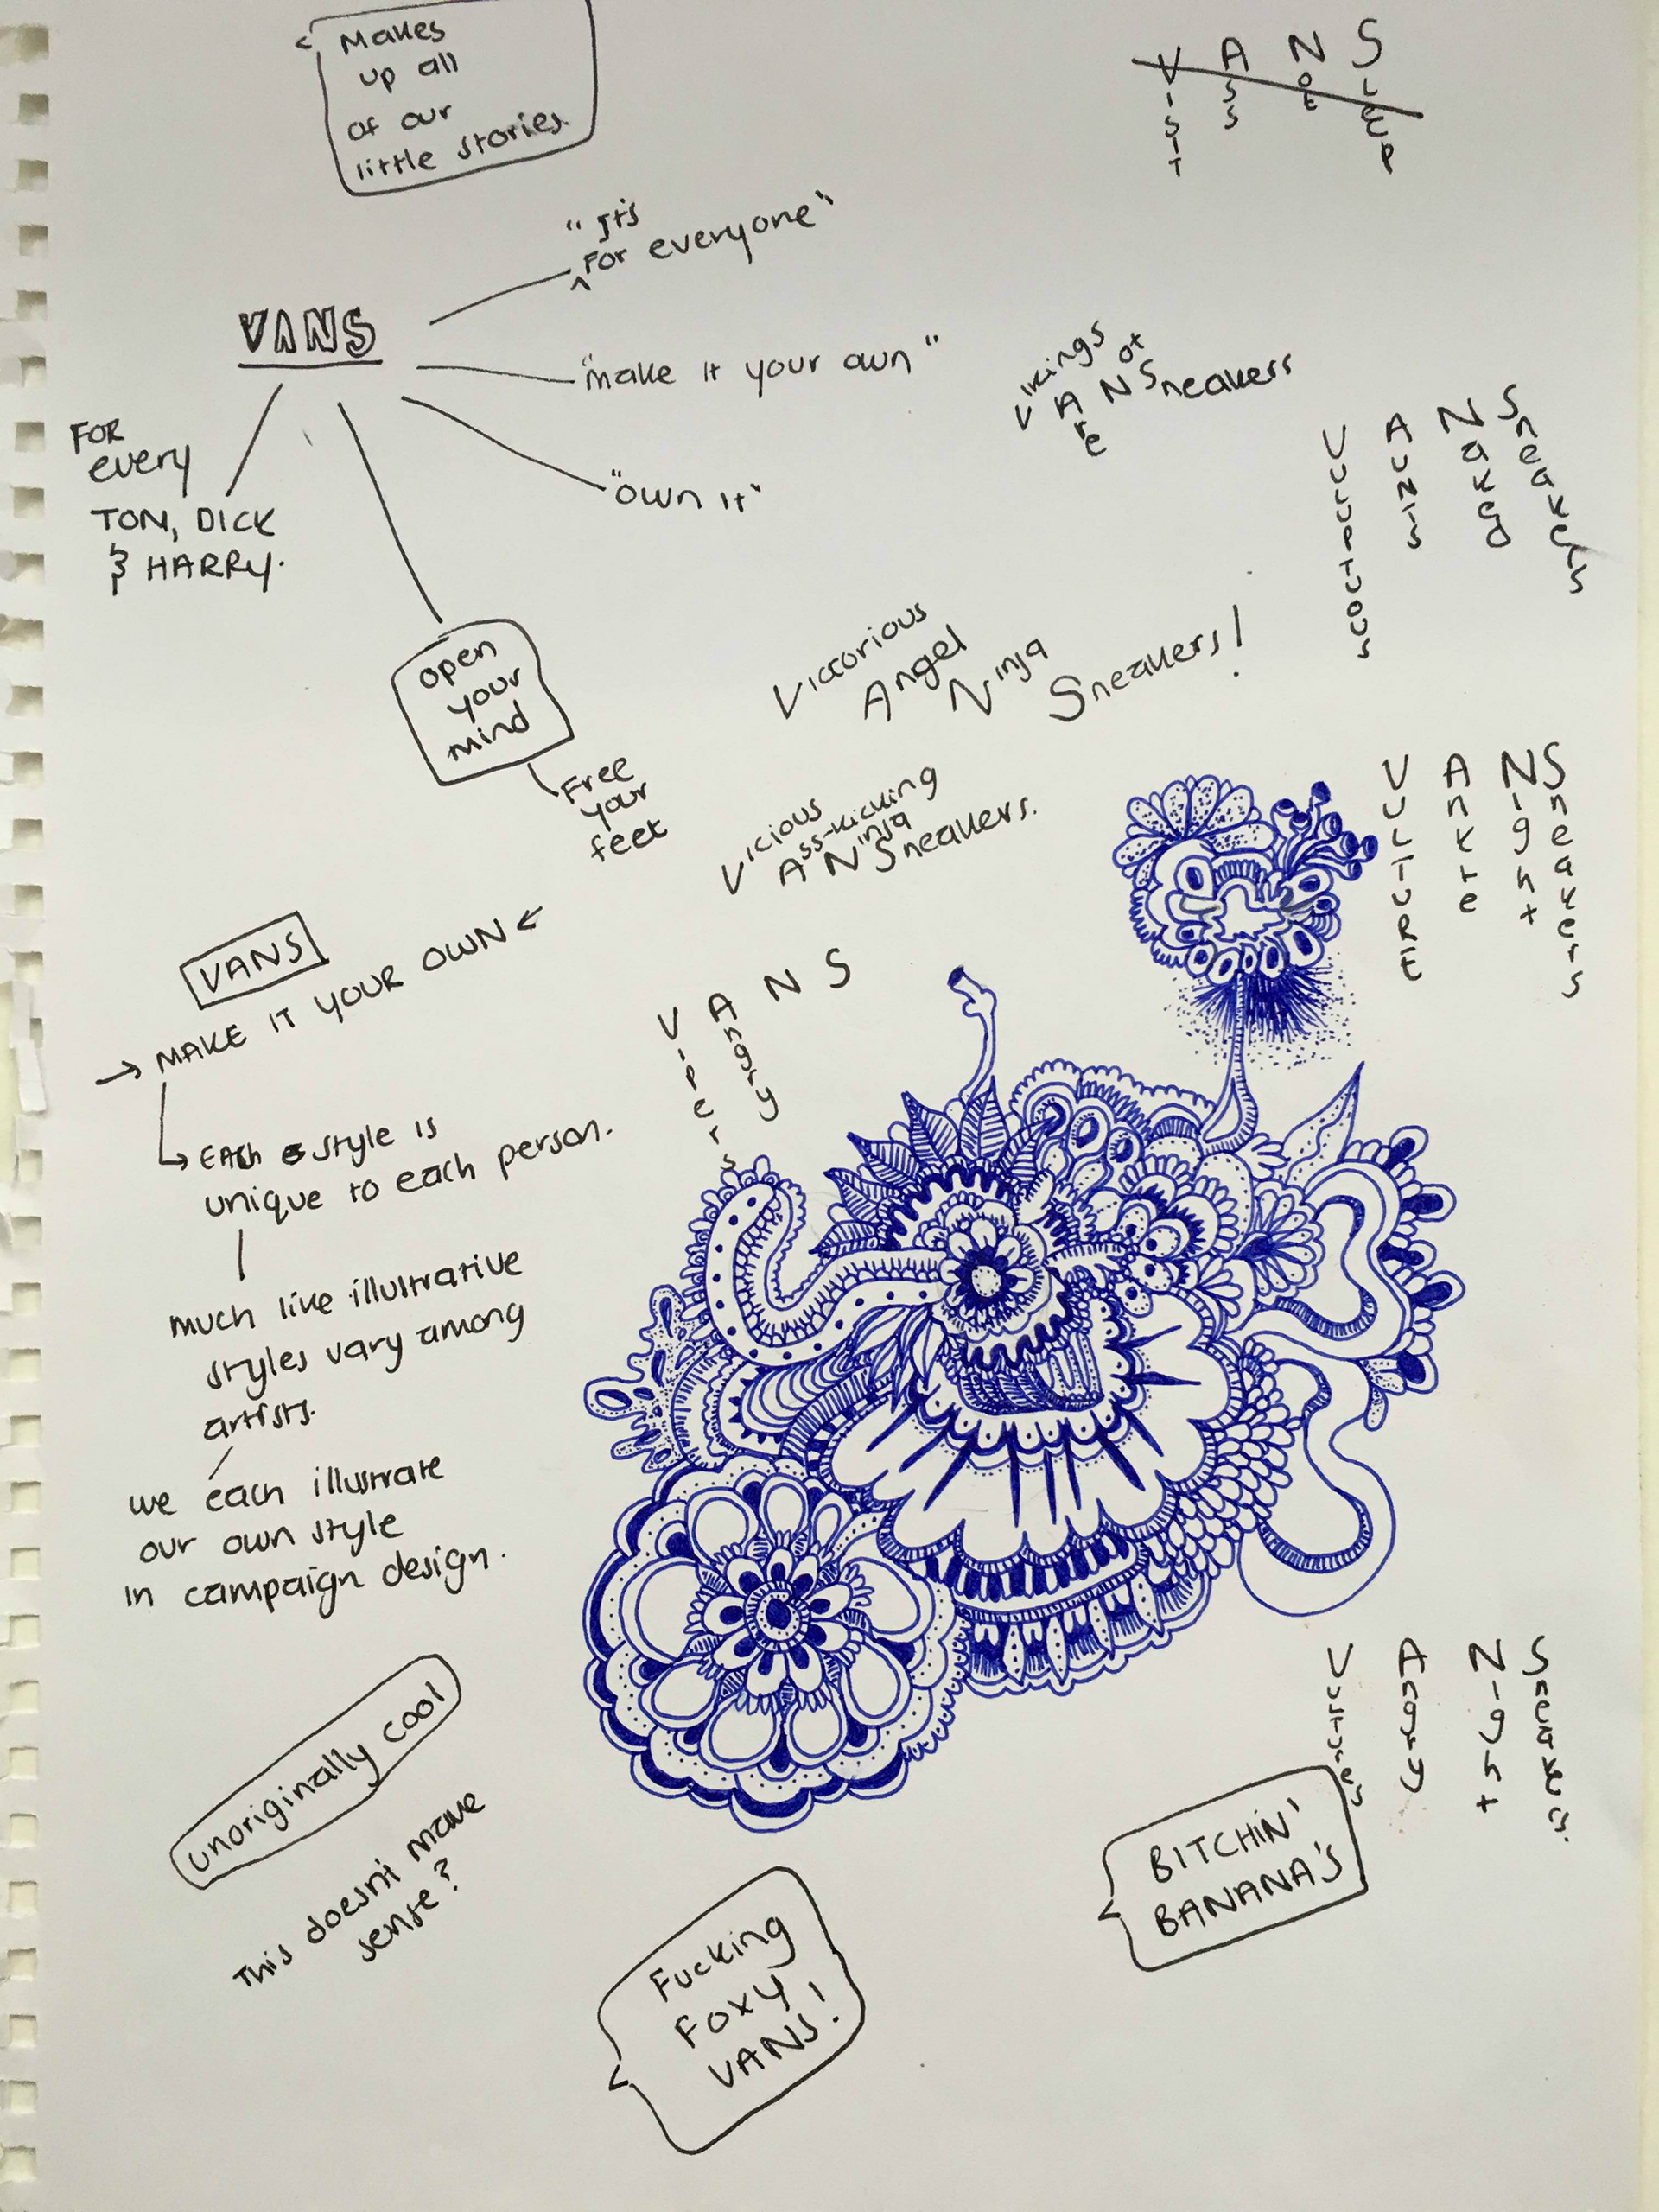 Makes
up all
of our
little stories.
V A N S
VISIT
ASS
NOt
"It's
For everyone"
VANS
"make it your own"
"own it"
FOR
every
TOM, DICK
& HARRY.
open
your
mind
Free
your
feet
Vikings
Are
Not
Sneakers
Voluptuous
Aunts
Naked
Sneakers
Victorious
Angel
Ninja
Sneakers!
Vicious
Ass-kicking
Ninja
Sneakers.
VULTURE
Ankle
Night
Sneakers
VANS
MAKE IT YOUR OWN
Each style is
unique to each person.
much like illustrative
styles vary among
artists.
we each illustrate
our own style
in campaign design.
V A N S
Vipers
Angry
Vultures
Angry
Night
Sneakers.
unoriginally cool
This doesn't make
sense?
Fucking
Foxy
VANS!
BITCHIN'
BANANA'S